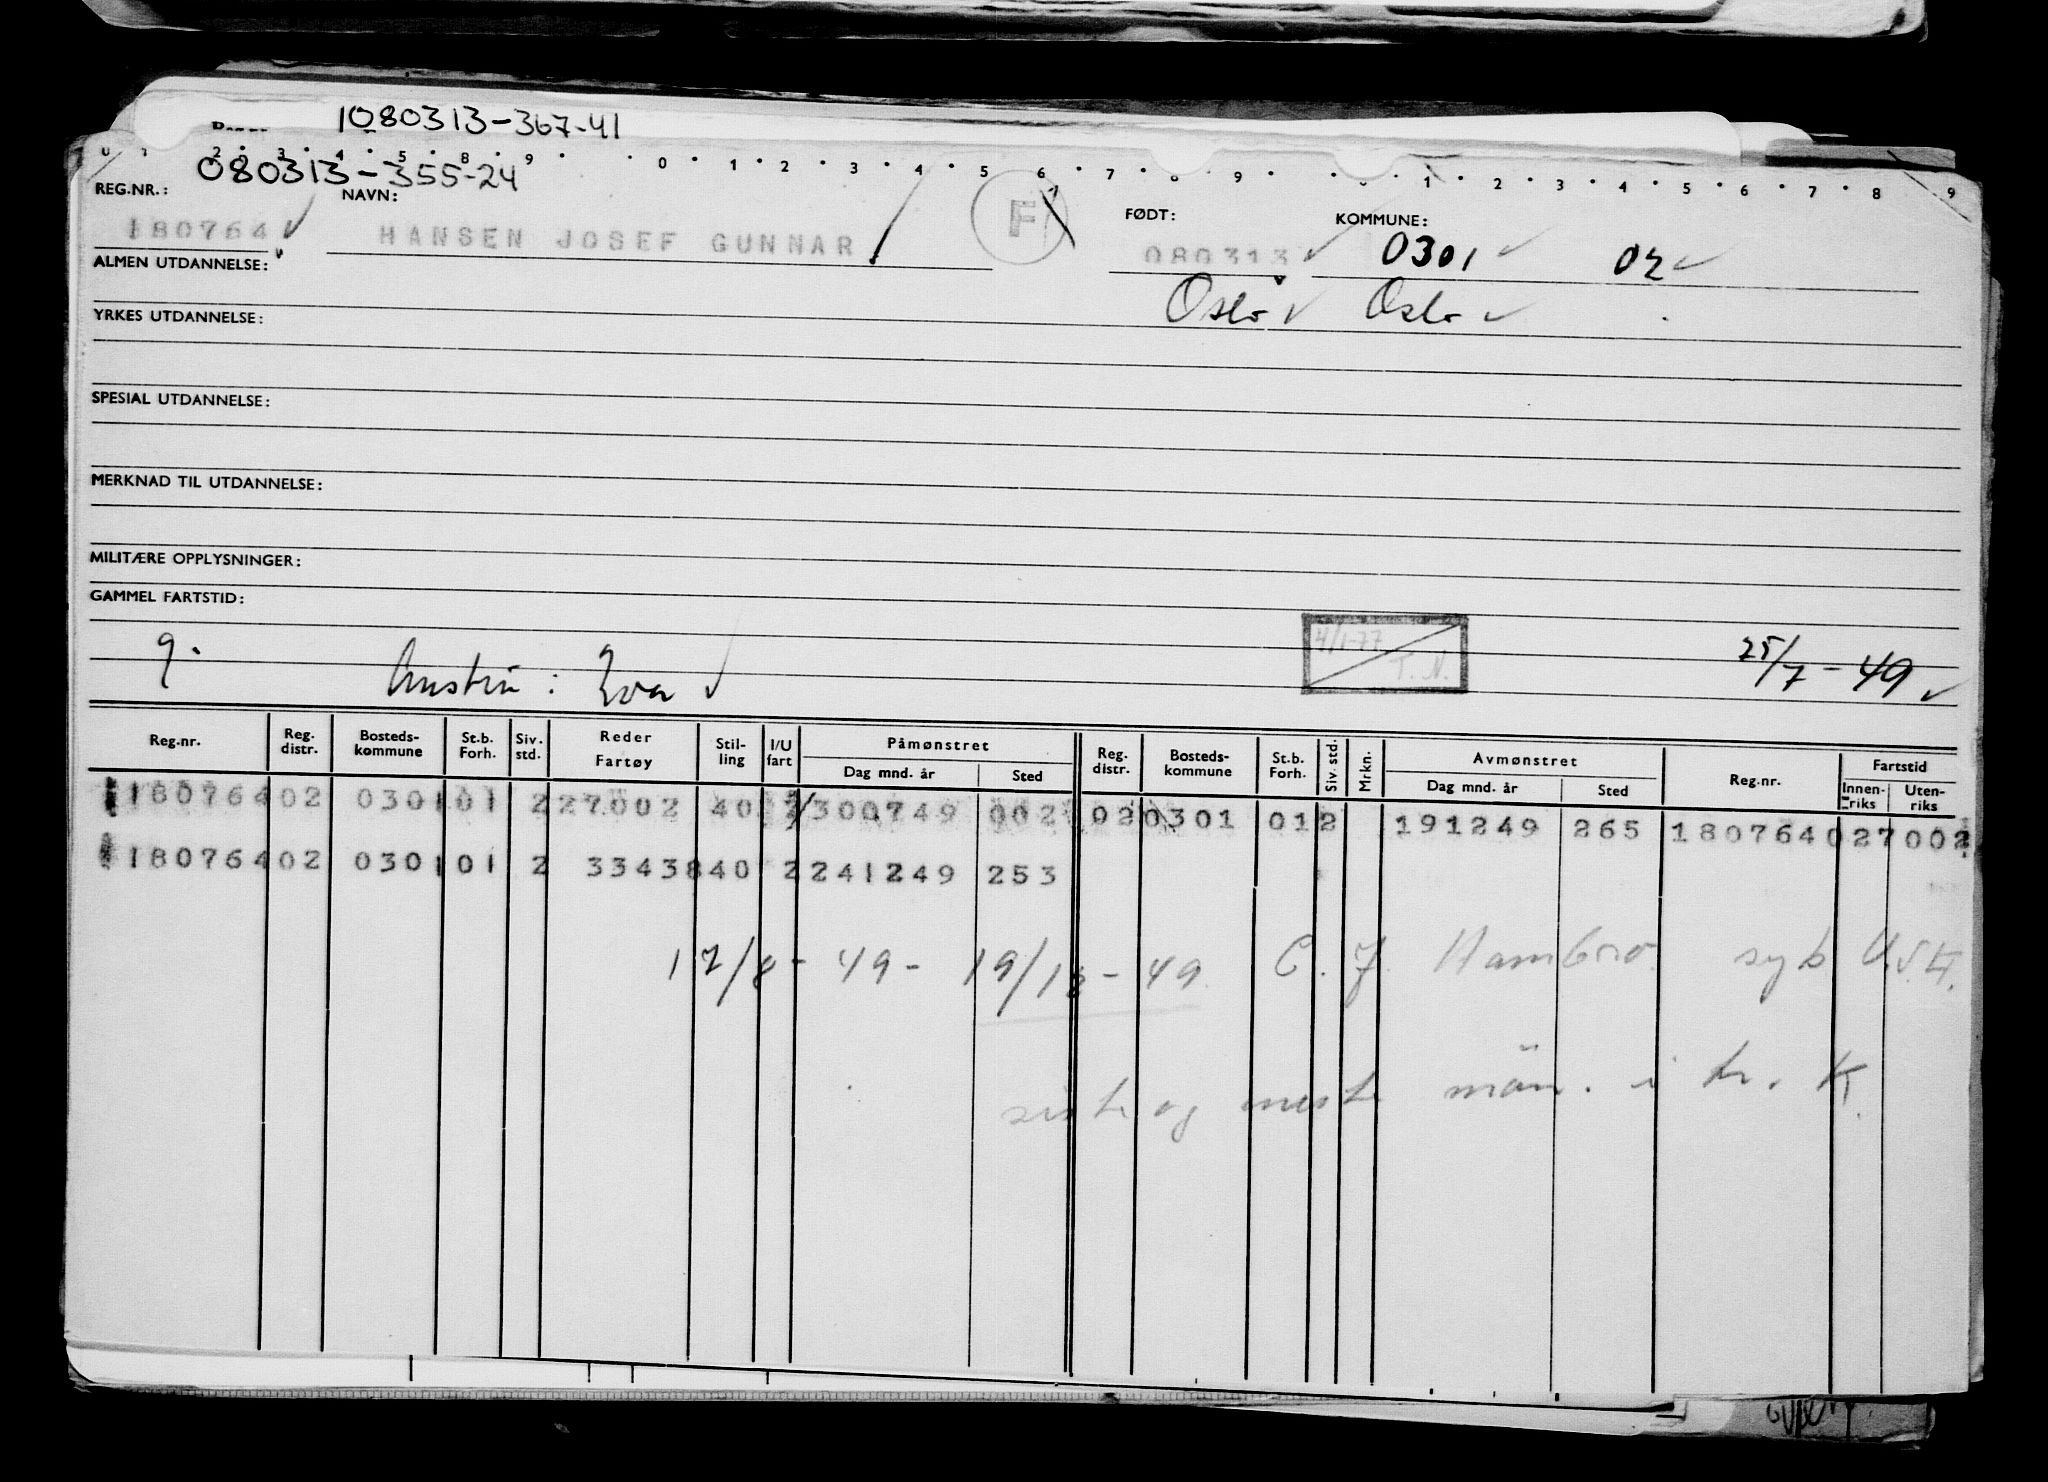 1080313-367-41
0 1 2 3 4 5 8 9 0 1 2 3 4 5 6 7 8 9 0 1 2 3 4 5 6 7 8 9
080313-355-24
REG.NR.: NAVN: FØDT: KOMMUNE:
180764 HANSEN JOSEF GUNNAR F 080313 0301 02
ALMEN UTDANNELSE:
Oslo Oslo
YRKES UTDANNELSE:
SPESIAL UTDANNELSE:
MERKNAD TIL UTDANNELSE:
MILITÆRE OPPLYSNINGER:
GAMMEL FARTSTID:
4/1-77
T. N.
g. : Eva 25/7-49
Reg.nr. Reg. distr. Bosteds-kommune St.b. Forh. Siv. std. Reder Fartøy Stil-ling I/U fart Påmønstret Dag mnd. år Sted Reg. distr. Bosteds-kommune St.b. Forh. Siv. std. Mrkn. Avmønstret Dag mnd. år Sted Reg.nr. Fartstid Innen-riks Uten-riks
180764 02 0301 01 2 27002 40 2 300749 002 02 0301 01 2 191249 265 180764 027002
180764 02 0301 01 2 33438 40 2 241249 253
17/8-49-19/12-49 C. J. Hambro syk
siste og neste mön. i tr. K.